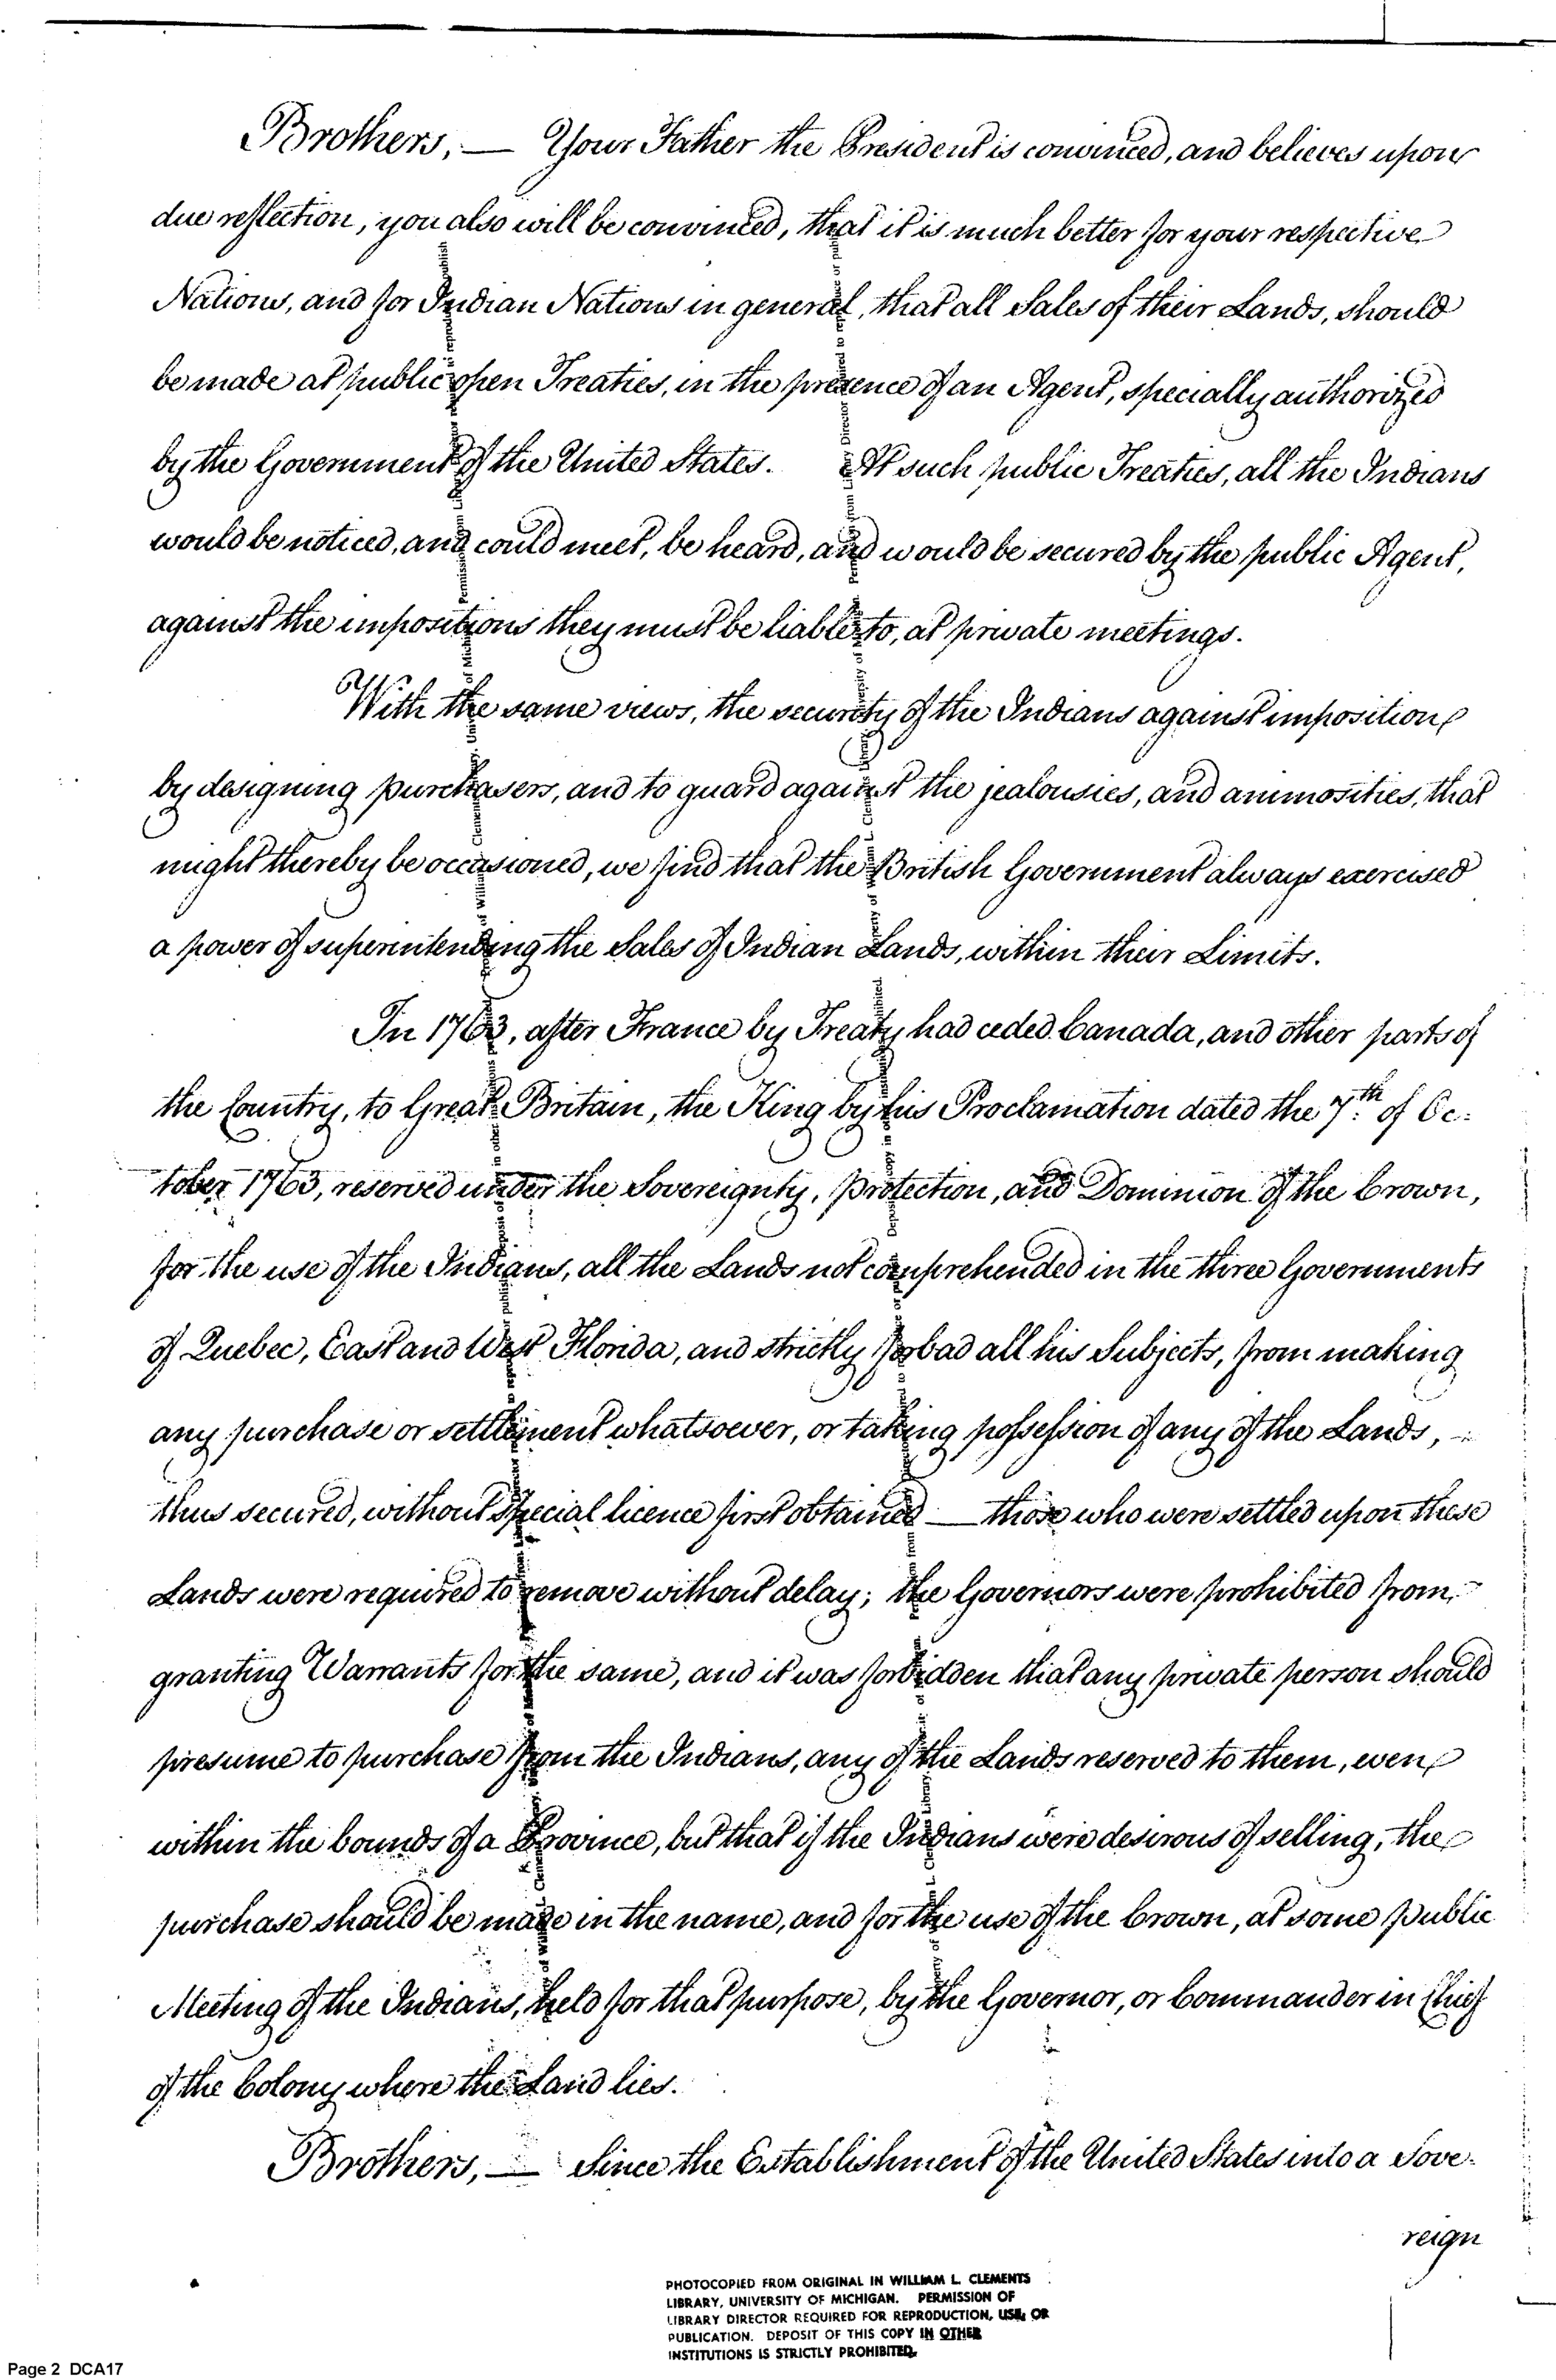 Brothers, — Your Father the President is convinced, and believes upon
due reflection, you also will be convinced, that it is much better for your respective
Nations, and for Indian Nations in general, that all Sales of their Lands, should
be made at public open Treaties, in the presence of an Agent, specially authorized
by the Government of the United States. At such public Treaties, all the Indians
would be noticed, and could meet, be heard, and would be secured by the public Agent,
against the impositions they must be liable to, at private meetings.
With the same views, the security of the Indians against imposition
by designing purchasers, and to guard against the jealousies, and animosities, that
might thereby be occasioned, we find that the British Government always exercised
a power of superintending the Sales of Indian Lands, within their Limits.
In 1763, after France by Treaty had ceded Canada, and other parts of
the Country, to Great Britain, the King by his Proclamation dated the 7th of Oc-
tober 1763, reserved under the Sovereignty, protection, and Dominion of the Crown,
for the use of the Indians, all the Lands not comprehended in the three Governments
of Quebec, East and West Florida, and strictly forbad all his Subjects, from making
any purchase or settlement whatsoever, or taking possession of any of the Lands, —
thus secured, without special licence first obtained — those who were settled upon these
Lands were required to remove without delay; the Governors were prohibited from
granting Warrants for the same, and it was forbidden that any private person should
presume to purchase from the Indians, any of the Lands reserved to them, even
within the bounds of a Province, but that if the Indians were desirous of selling, the
purchase should be made in the name, and for the use of the Crown, at some public
Meeting of the Indians, held for that purpose, by the Governor, or Commander in Chief
of the Colony where the Land lies.
Brothers, — Since the Establishment of the United States into a Sove-
reign
PHOTOCOPIED FROM ORIGINAL IN WILLIAM L. CLEMENTS
LIBRARY, UNIVERSITY OF MICHIGAN. PERMISSION OF
LIBRARY DIRECTOR REQUIRED FOR REPRODUCTION, USE, OR
PUBLICATION. DEPOSIT OF THIS COPY IN OTHER
INSTITUTIONS IS STRICTLY PROHIBITED.
Page 2 DCA17